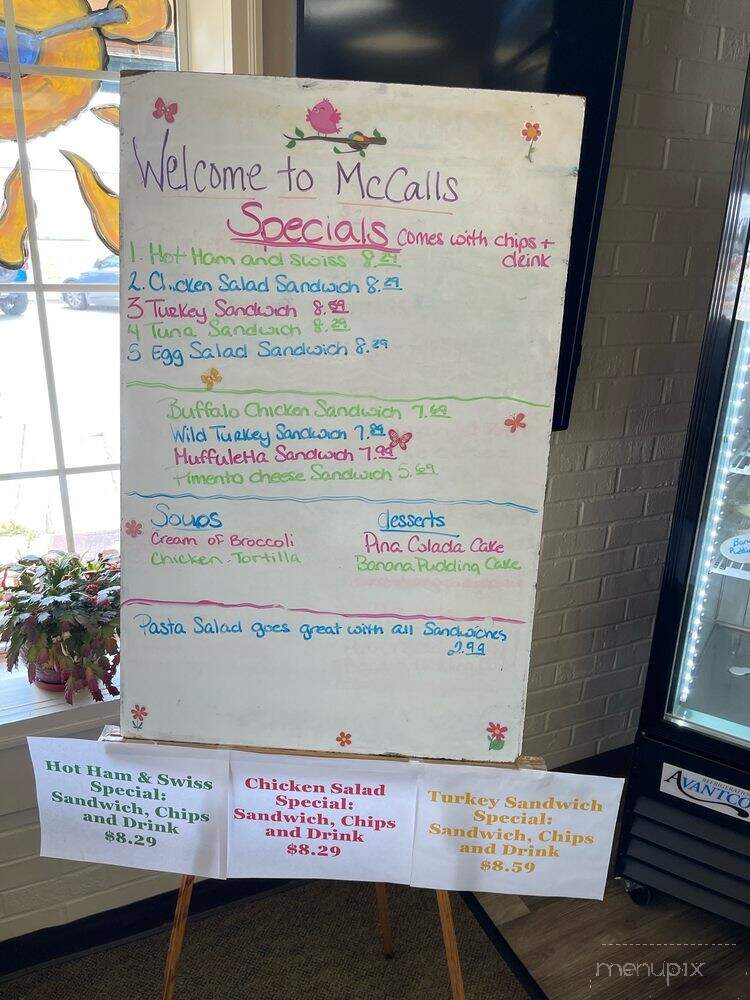 Welcome to McCalls
Specials comes with chips +
drink
1. Hot Ham and swiss 8.29
2. Chicken Salad Sandwich 8.29
3 Turkey Sandwich 8.59
4 Tuna Sandwich 8.29
5 Egg Salad Sandwich 8.29
Buffalo Chicken Sandwich 7.69
Wild Turkey Sandwich 7.89
Muffuletta Sandwich 7.99
Pimento cheese Sandwich 5.69
Soups
Cream of Broccoli
Chicken Tortilla
desserts
Pina Colada Cake
Banana Pudding Cake
Pasta Salad goes great with all Sandwiches
2.99
Hot Ham & Swiss
Special:
Sandwich, Chips
and Drink
$8.29
Chicken Salad
Special:
Sandwich, Chips
and Drink
$8.29
Turkey Sandwich
Special:
Sandwich, Chips
and Drink
$8.59
REFRIGERATION
AVANTCO
menupix